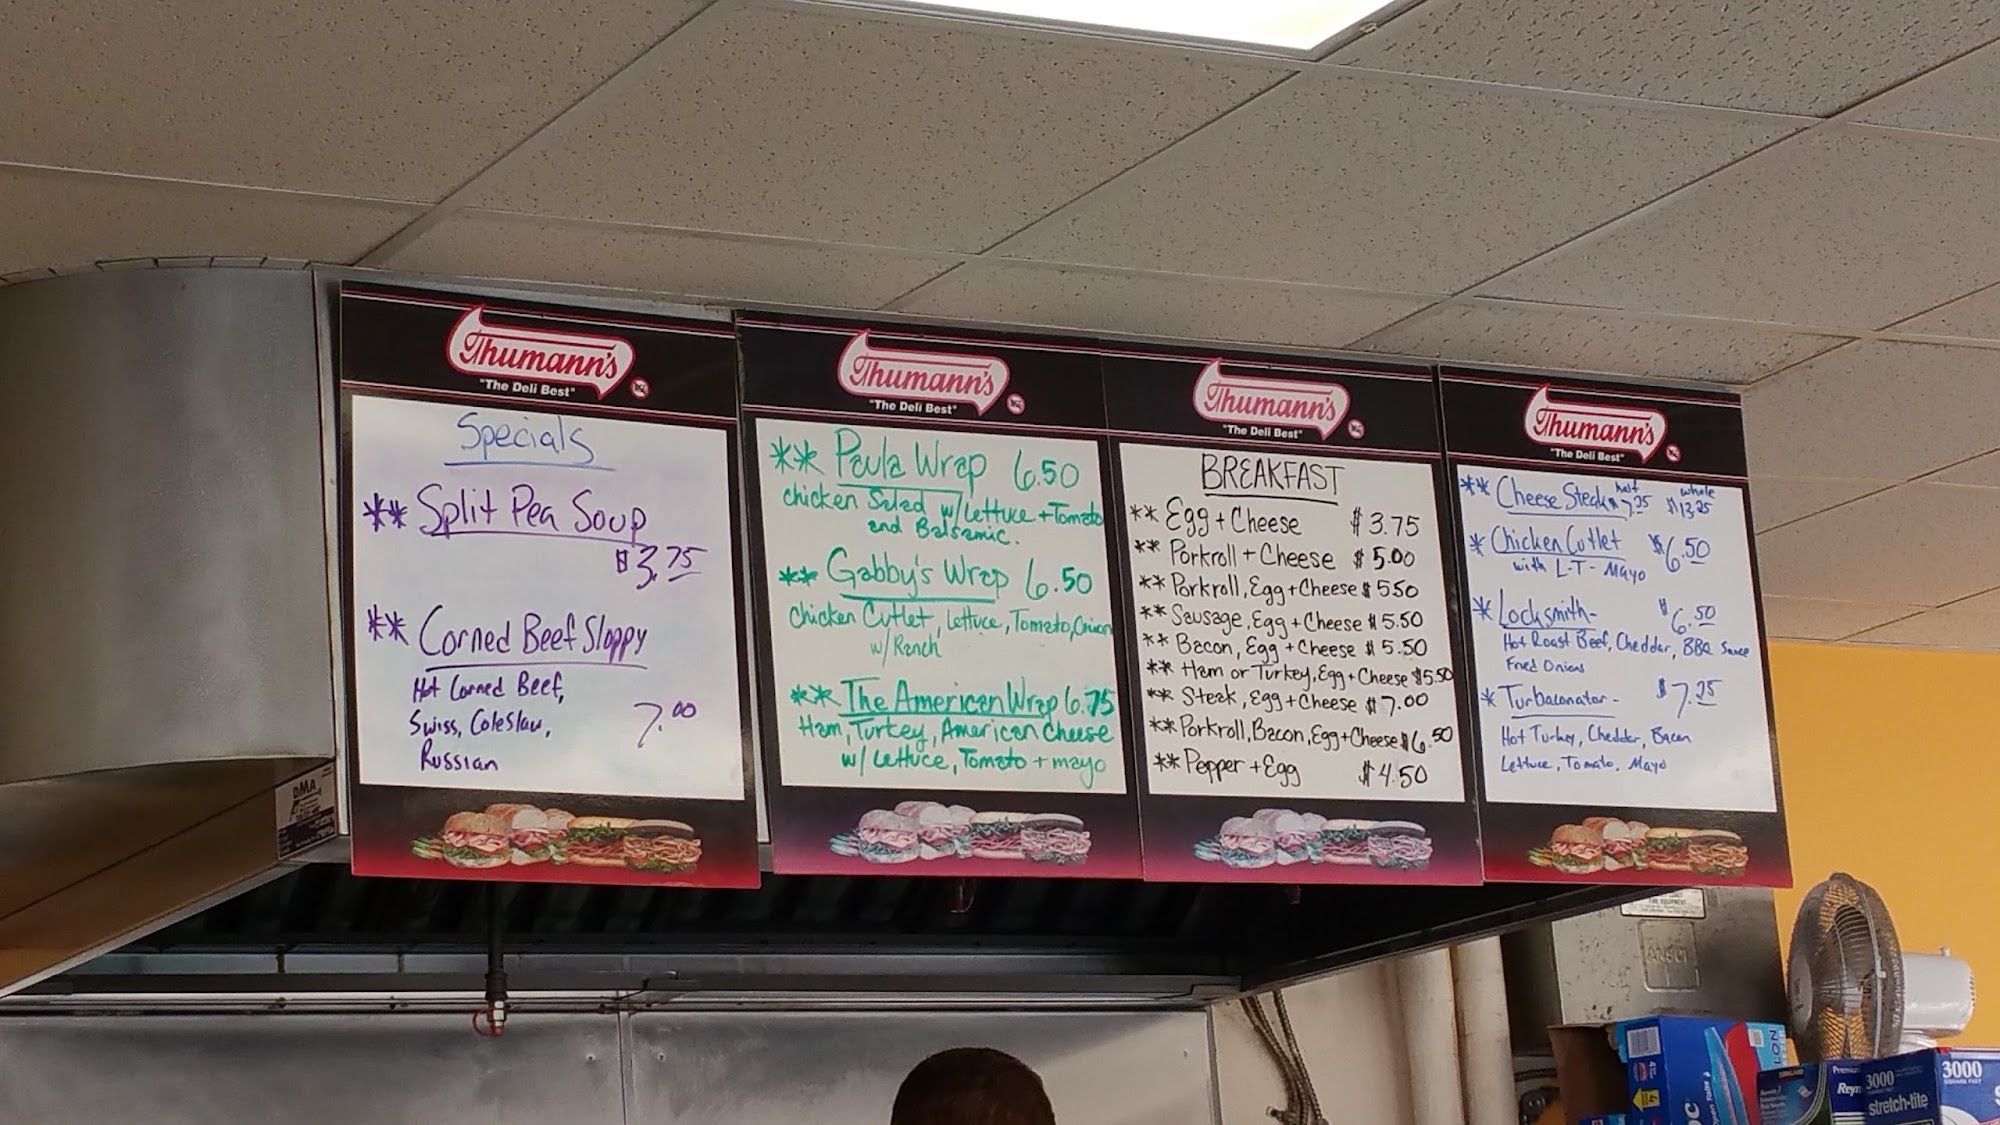 Thumann's
"The Deli Best"
Specials
** Split Pea Soup
$3.75
** Corned Beef Sloppy
Hot Corned Beef,
Swiss, Coleslaw, 7.00
Russian
Thumann's
"The Deli Best"
** Paula Wrap 6.50
chicken Salad w/Lettuce + Tomato
and Balsamic.
** Gabby's Wrap 6.50
Chicken Cutlet, Lettuce, Tomato, Onion
w/ Ranch
** The American Wrap 6.75
Ham, Turkey, American Cheese
w/ Lettuce, Tomato + mayo
Thumann's
"The Deli Best"
BREAKFAST
** Egg + Cheese $3.75
** Porkroll + Cheese $5.00
** Porkroll, Egg + Cheese $5.50
** Sausage, Egg + Cheese $5.50
** Bacon, Egg + Cheese $5.50
** Ham or Turkey, Egg + Cheese $5.50
** Steak, Egg + Cheese $7.00
** Porkroll, Bacon, Egg + Cheese $6.50
** Pepper + Egg $4.50
Thumann's
"The Deli Best"
** Cheese Steak half $7.25 whole $13.25
* Chicken Cutlet $6.50
with L-T- Mayo
* Locksmith- $6.50
Hot Roast Beef, Cheddar, BBQ Sauce
Fried Onions
* Turbaconator- $7.25
Hot Turkey, Cheddar, Bacon
Lettuce, Tomato, Mayo
DMA
FIRE EQUIPMENT
ANSUL
3000
stretch-tite
3000